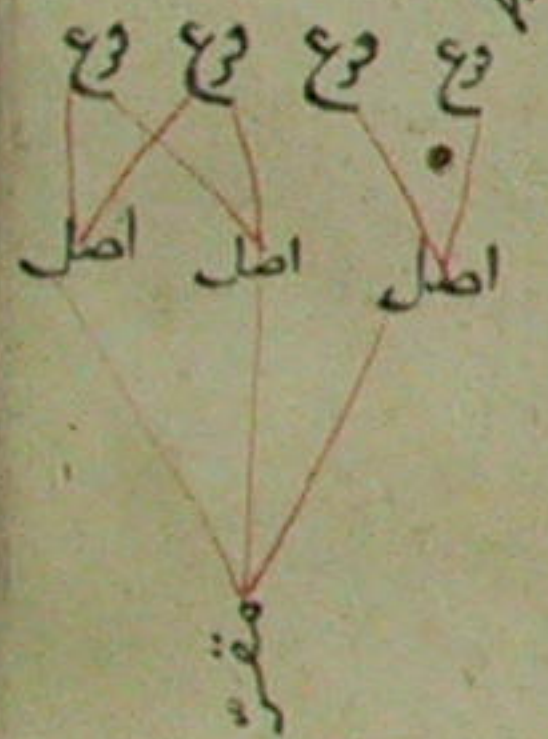 فرع فرع فرع فرع
اصل اصل اصل
مقر